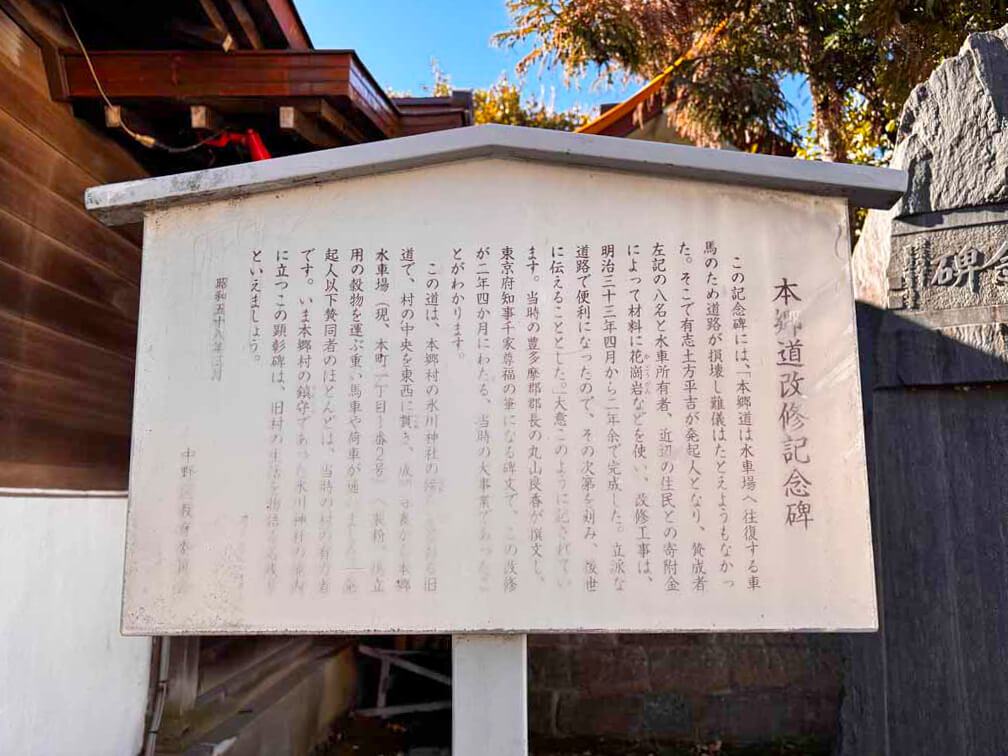 本郷道改修記念碑
この記念碑には、「本郷道は水車場へ往復する車
馬のため道路が損壊し難儀はたとえようもなかっ
た。そこで有志土方平吉が発起人となり、賛成者
左記の八名と水車所有者、近辺の住民との寄附金
によって材料に花崗岩などを使い、改修工事は、
かこうがん
明治三十三年四月から二年余で完成した。立派な
道路で便利になったので、その次第を刻み、後世
に伝えることとした。」大意このように記されてい
ます。当時の豊多摩郡郡長の丸山良香が撰文し、
東京府知事千家尊福の筆になる碑文で、この改修
が二年四か月にわたる、当時の大事業であったこ
とがわかります。
この道は、本郷村の氷川神社の る旧
道で、村の中央を東西に貫き、成 本郷
水車場(現、本町 丁目 番 号)へ製粉、
用の穀物を運ぶ重い馬車や荷車が通いました。発
起人以下賛同者のほとんどは、当時の村の有力者
です。いま本郷村の鎮守であった氷川神社の境内
に立つこの顕彰碑は、旧村の生活を物語る
といえましょう。
昭和五十八年 月
中野区教育委員会
碑